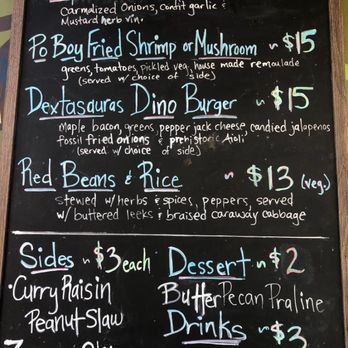 Carmalized Onions, confit garlic &
Mustard herb vin.
Po Boy Fried Shrimp or Mushroom ~ $15
greens, tomatoes, pickled veg, house made remoulade
(served w/ choice of side)
Dextasauras Dino Burger ~ $15
Maple bacon, greens, pepper jack cheese, candied jalapenos
Fossil fried onions & prehistoric Aioli
(served w/ choice of side)
Red Beans & Rice ~ $13 (veg.)
stewed w/ herbs & spices, peppers, served
w/ buttered leeks & braised caraway cabbage
Sides ~ $3 each
• Curry Raisin
Peanut-Slaw
Dessert ~ $2
Butter Pecan Praline
Drinks ~ $3